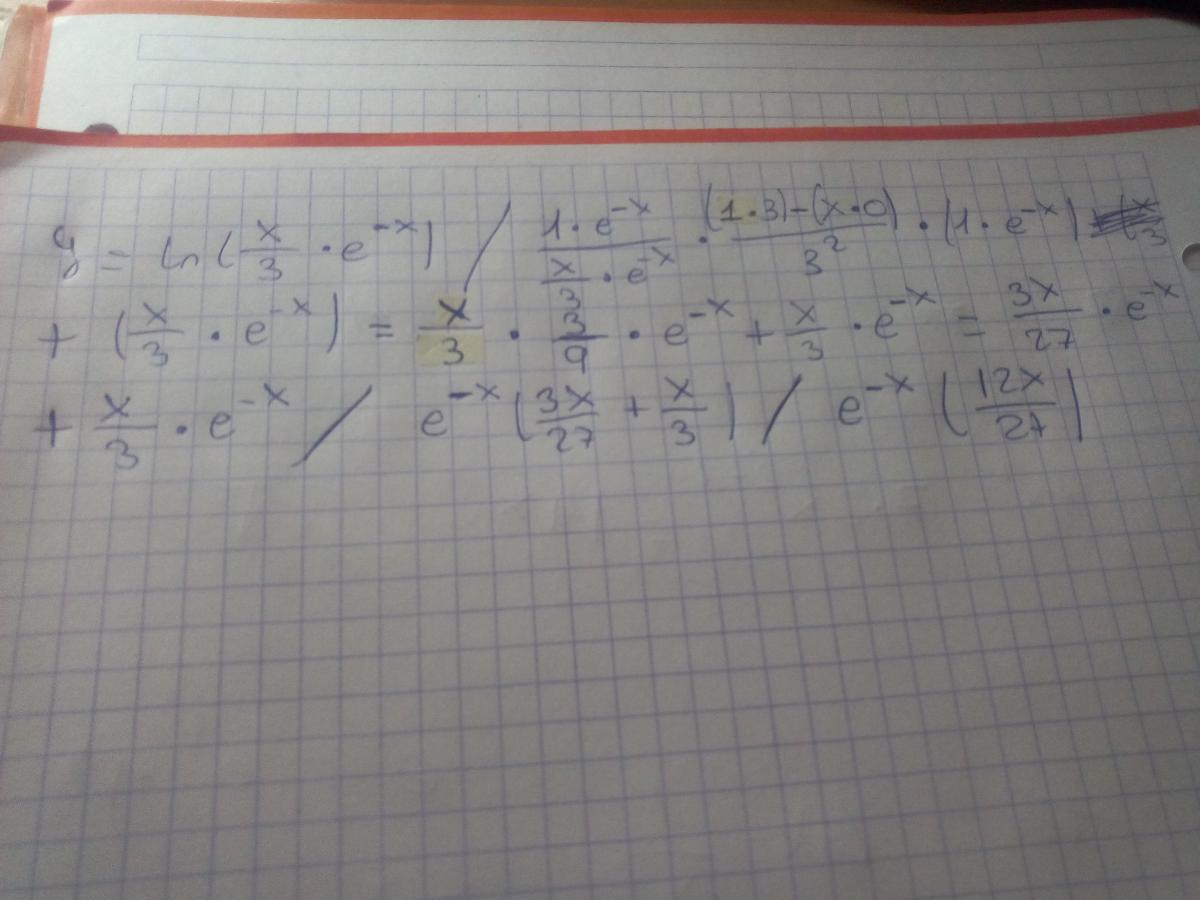 y = ln(x/3 · e^-x) / (1·e^-x)/(x/3 · e^-x) · ((1·3)-(x·0))/3^2 · (1·e^-x)
+ (x/3 · e^-x) = x/3 · 3/9 · e^-x + x/3 · e^-x = 3x/27 · e^-x
+ x/3 · e^-x / e^-x (3x/27 + x/3) / e^-x (12x/27)